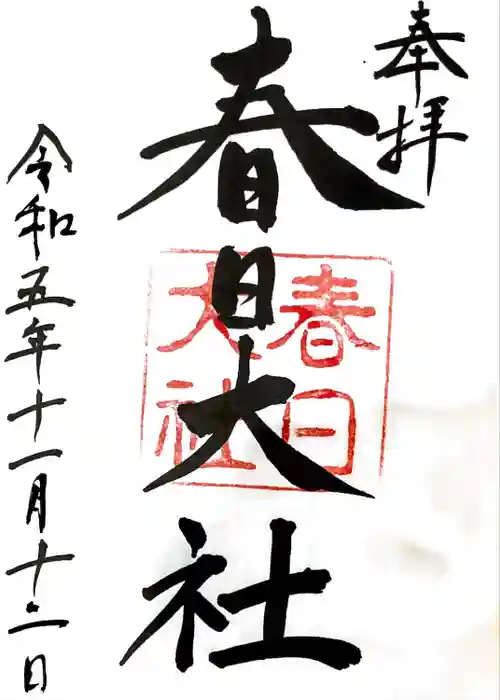 奉拝
春日大社
春日大社
令和五年十一月十二日